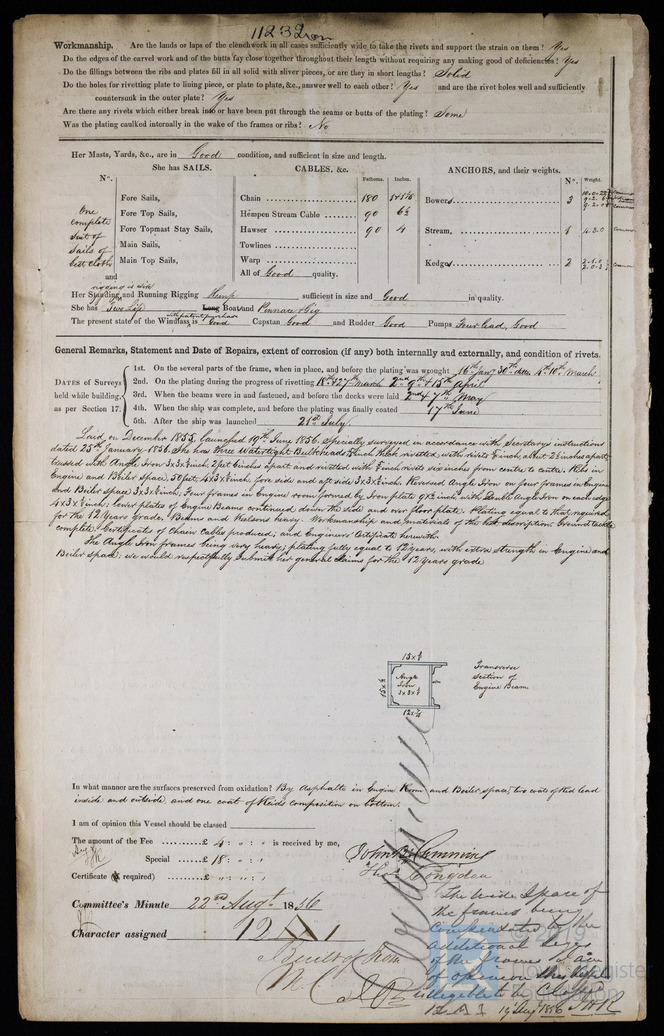 1123 Iron
Workmanship. Are the lands or laps of the clenchwork in all cases sufficiently wide to take the rivets and support the strain on them? Yes
Do the edges of the carvel work and of the butts fay close together throughout their length without requiring any making good of deficiencies? Yes
Do the fillings between the ribs and plates fill in all solid with sliver pieces, or are they in short lengths? Solid
Do the holes for rivetting plate to lining piece, or plate to plate, &c., answer well to each other? Yes and are the rivet holes well and sufficiently
countersunk in the outer plate? Yes
Are there any rivets which either break into or have been put through the seams or butts of the plating? Some
Was the plating caulked internally in the wake of the frames or ribs? No
Her Masts, Yards, &c., are in Good condition, and sufficient in size and length.
She has SAILS. CABLES, &c. ANCHORS, and their weights.
No. Fathoms. Inches. No. Weight.
One complete suit of Sails of best cloth
and
Fore Sails,
Fore Top Sails,
Fore Topmast Stay Sails,
Main Sails,
Main Top Sails,
Chain 180
Hempen Stream Cable 90 6½
Hawser 90 4
Towlines
Warp
All of Good quality.
Bowers 3
Stream, 1 4.3.0
Kedges 2
rigging is wire
Her Standing and Running Rigging Hemp sufficient in size and Good in quality.
She has Two Life Long Boat and Pinnace & Gig
with patent purchase
The present state of the Windlass is Good Capstan Good and Rudder Good Pumps Four lead, Good
General Remarks, Statement and Date of Repairs, extent of corrosion (if any) both internally and externally, and condition of rivets.
DATES of Surveys held while building, as per Section 17.
1st. On the several parts of the frame, when in place, and before the plating was wrought 16th Jany 30th 4th 10th March
2nd. On the plating during the progress of rivetting 18th & 27th March 2nd 9th & 15th April
3rd. When the beams were in and fastened, and before the decks were laid 2nd & 7th May
4th. When the ship was complete, and before the plating was finally coated 17th June
5th. After the ship was launched 21st July
Laid on December 1855, launched 19th June 1856. Specially surveyed in accordance with Secretary's instructions
dated 25th January 1856. She has three Watertight Bulkheads inch thick rivetted, with rivets inch, abt 2½ inches apart
trussed with Angle Iron 3x3x inch, 2 feet 6 inches apart and rivetted with inch rivets six inches from centre to centre. Ribs in
Engine and Boiler Space, 50 feet, 4x3x inch, fore side and aft side 3x3x inch. Reversed Angle Iron on four frames in Engine
and Boiler space 3x3x inch; Four frames in Engine room formed by Iron plate 9x inch with double Angle Iron on each edge
4x3x inch; lower plates of Engine Beams continued down the side and over floor plate. Plating equal to that required
for the 12 Years grade. Beams and Keelsons heavy. Workmanship and materials of the best description. Ground tackle
complete; Certificates of Chain Cables produced; and Engineers Certificate herewith.
The Angle Iron frames being very heavy; plating fully equal to 12 years, with extra strength in Engine and
Boiler space; we would respectfully submit her general claims for the 12 Years grade
15x
15x
Angle Iron
3x3x
12x
Transverse section of Engine Beam
In what manner are the surfaces preserved from oxidation? By Asphalte in Engine Room and Boiler space, two coats of Red lead
inside and outside, and one coat of Reids composition on bottom.
I am of opinion this Vessel should be classed
The amount of the Fee £ 4 : " : " is received by me,
Special £ 18 : " : "
Certificate (if required) £ " : " : "
John B Cumming
Thos Congdon
Committee's Minute 22nd Augt 1856
Character assigned 12 A 1
Built of Iron
M.C.
The wide space of
the frames being
compensated by the
additional
of the frames I am
of opinion this Vessel
is eligible to be Classed
12 A 1 19 Aug 1856
© 2019
Lloyd's Register
Foundation